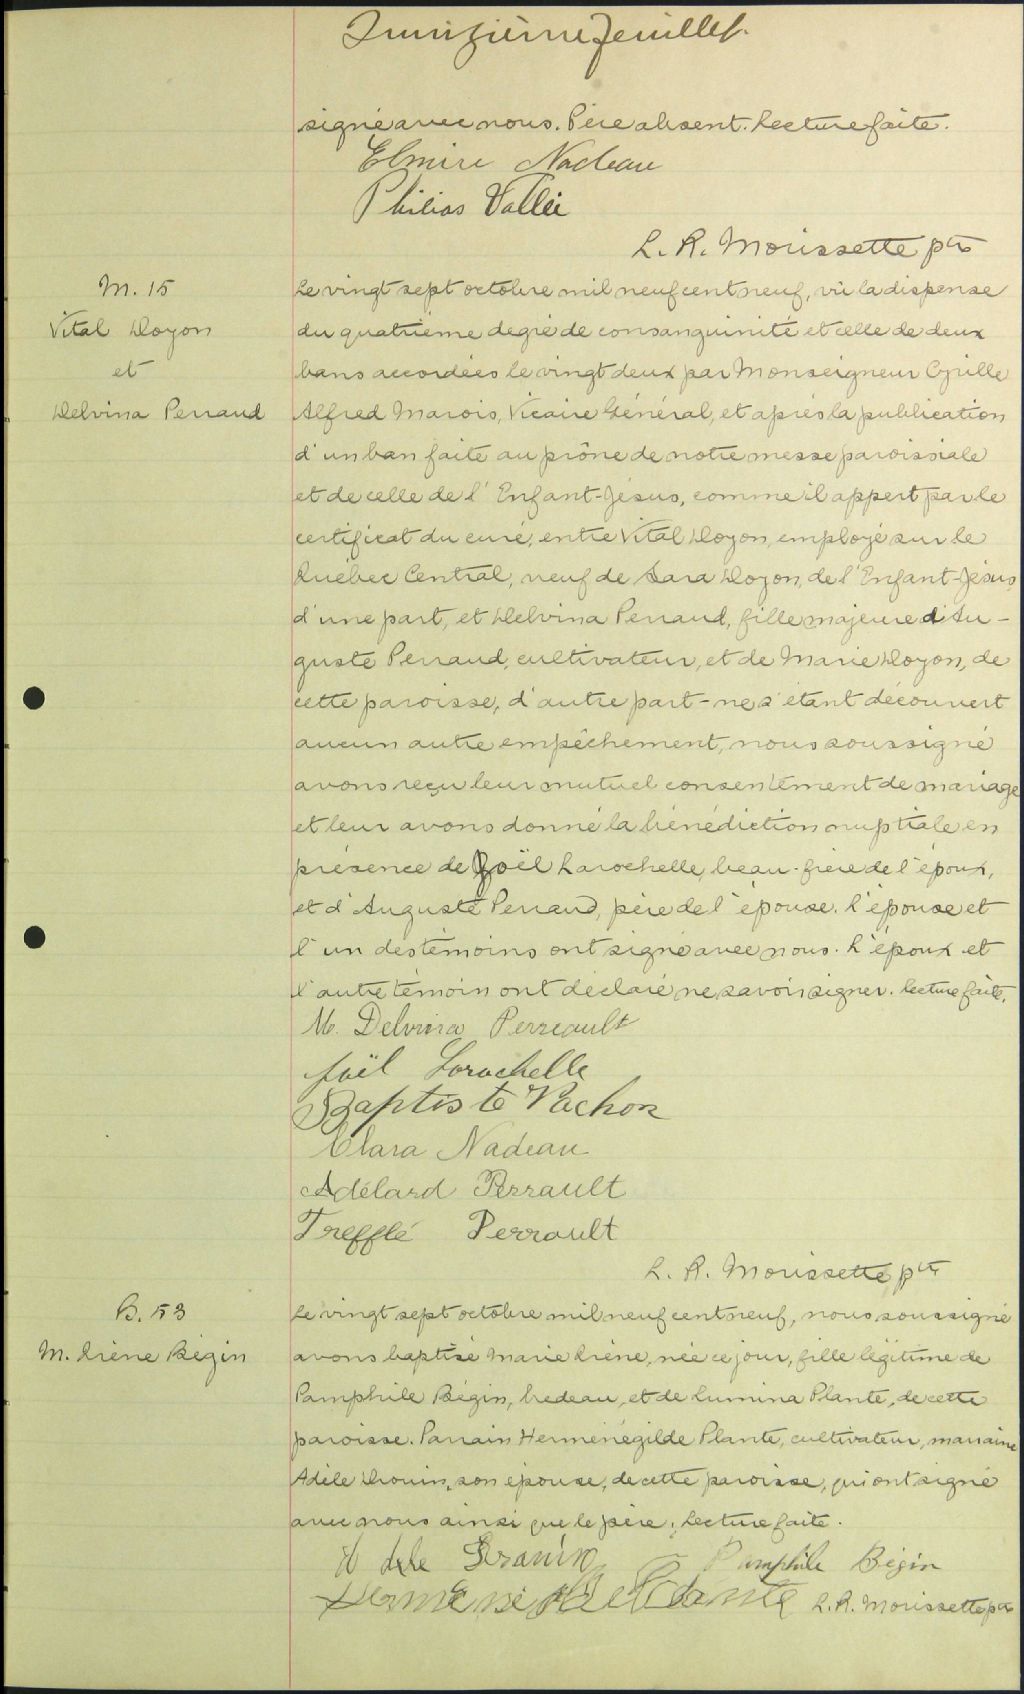 Quinzième feuillet.
signé avec nous. Père absent. Lecture faite.
Elmire Nadeau
Philias Vallée
L. R. Morissette ptre
M. 15
Vital Doyon
et
Delvina Perraud
Le vingt sept octobre mil neuf cent neuf, vu la dispense
du quatrième degré de consanguinité et celle de deux
bans accordées le vingt deux par Monseigneur Cyrille
Alfred Marois, Vicaire Général, et après la publication
d'un ban faite au prône de notre messe paroissiale
et de celle de l'Enfant-Jésus, comme il appert par le
certificat du curé, entre Vital Doyon, employé sur le
Québec Central, veuf de Sara Doyon, de l'Enfant-Jésus,
d'une part, et Delvina Perraud, fille majeure d'Au-
guste Perraud, cultivateur, et de Marie Doyon, de
cette paroisse, d'autre part - ne s'étant découvert
aucun autre empêchement, nous soussigné
avons reçu leur mutuel consentement de mariage
et leur avons donné la bénédiction nuptiale en
présence de Joël Larochelle, beau-frère de l'époux,
et d'Auguste Perraud, père de l'épouse. L'épouse et
l'un des témoins ont signé avec nous. L'époux et
l'autre témoin ont déclaré ne savoir signer. Lecture faite.
M. Delvina Perreault
Joël Larochelle
Baptiste Vachon
Clara Nadeau
Adélard Perrault
Trefflé Perrault
L. R. Morissette ptre
B. 53
M. Irène Bégin
Le vingt sept octobre mil neuf cent neuf, nous soussigné
avons baptisé Marie Irène, née ce jour, fille légitime de
Pamphile Bégin, bedeau, et de Lumina Plante, de cette
paroisse. Parrain Herménégilde Plante, cultivateur, marraine
Adèle Drouin, son épouse, de cette paroisse, qui ont signé
avec nous ainsi que le père. Lecture faite.
Adele Pamphile Bégin
Plante L. R. Morissette ptre